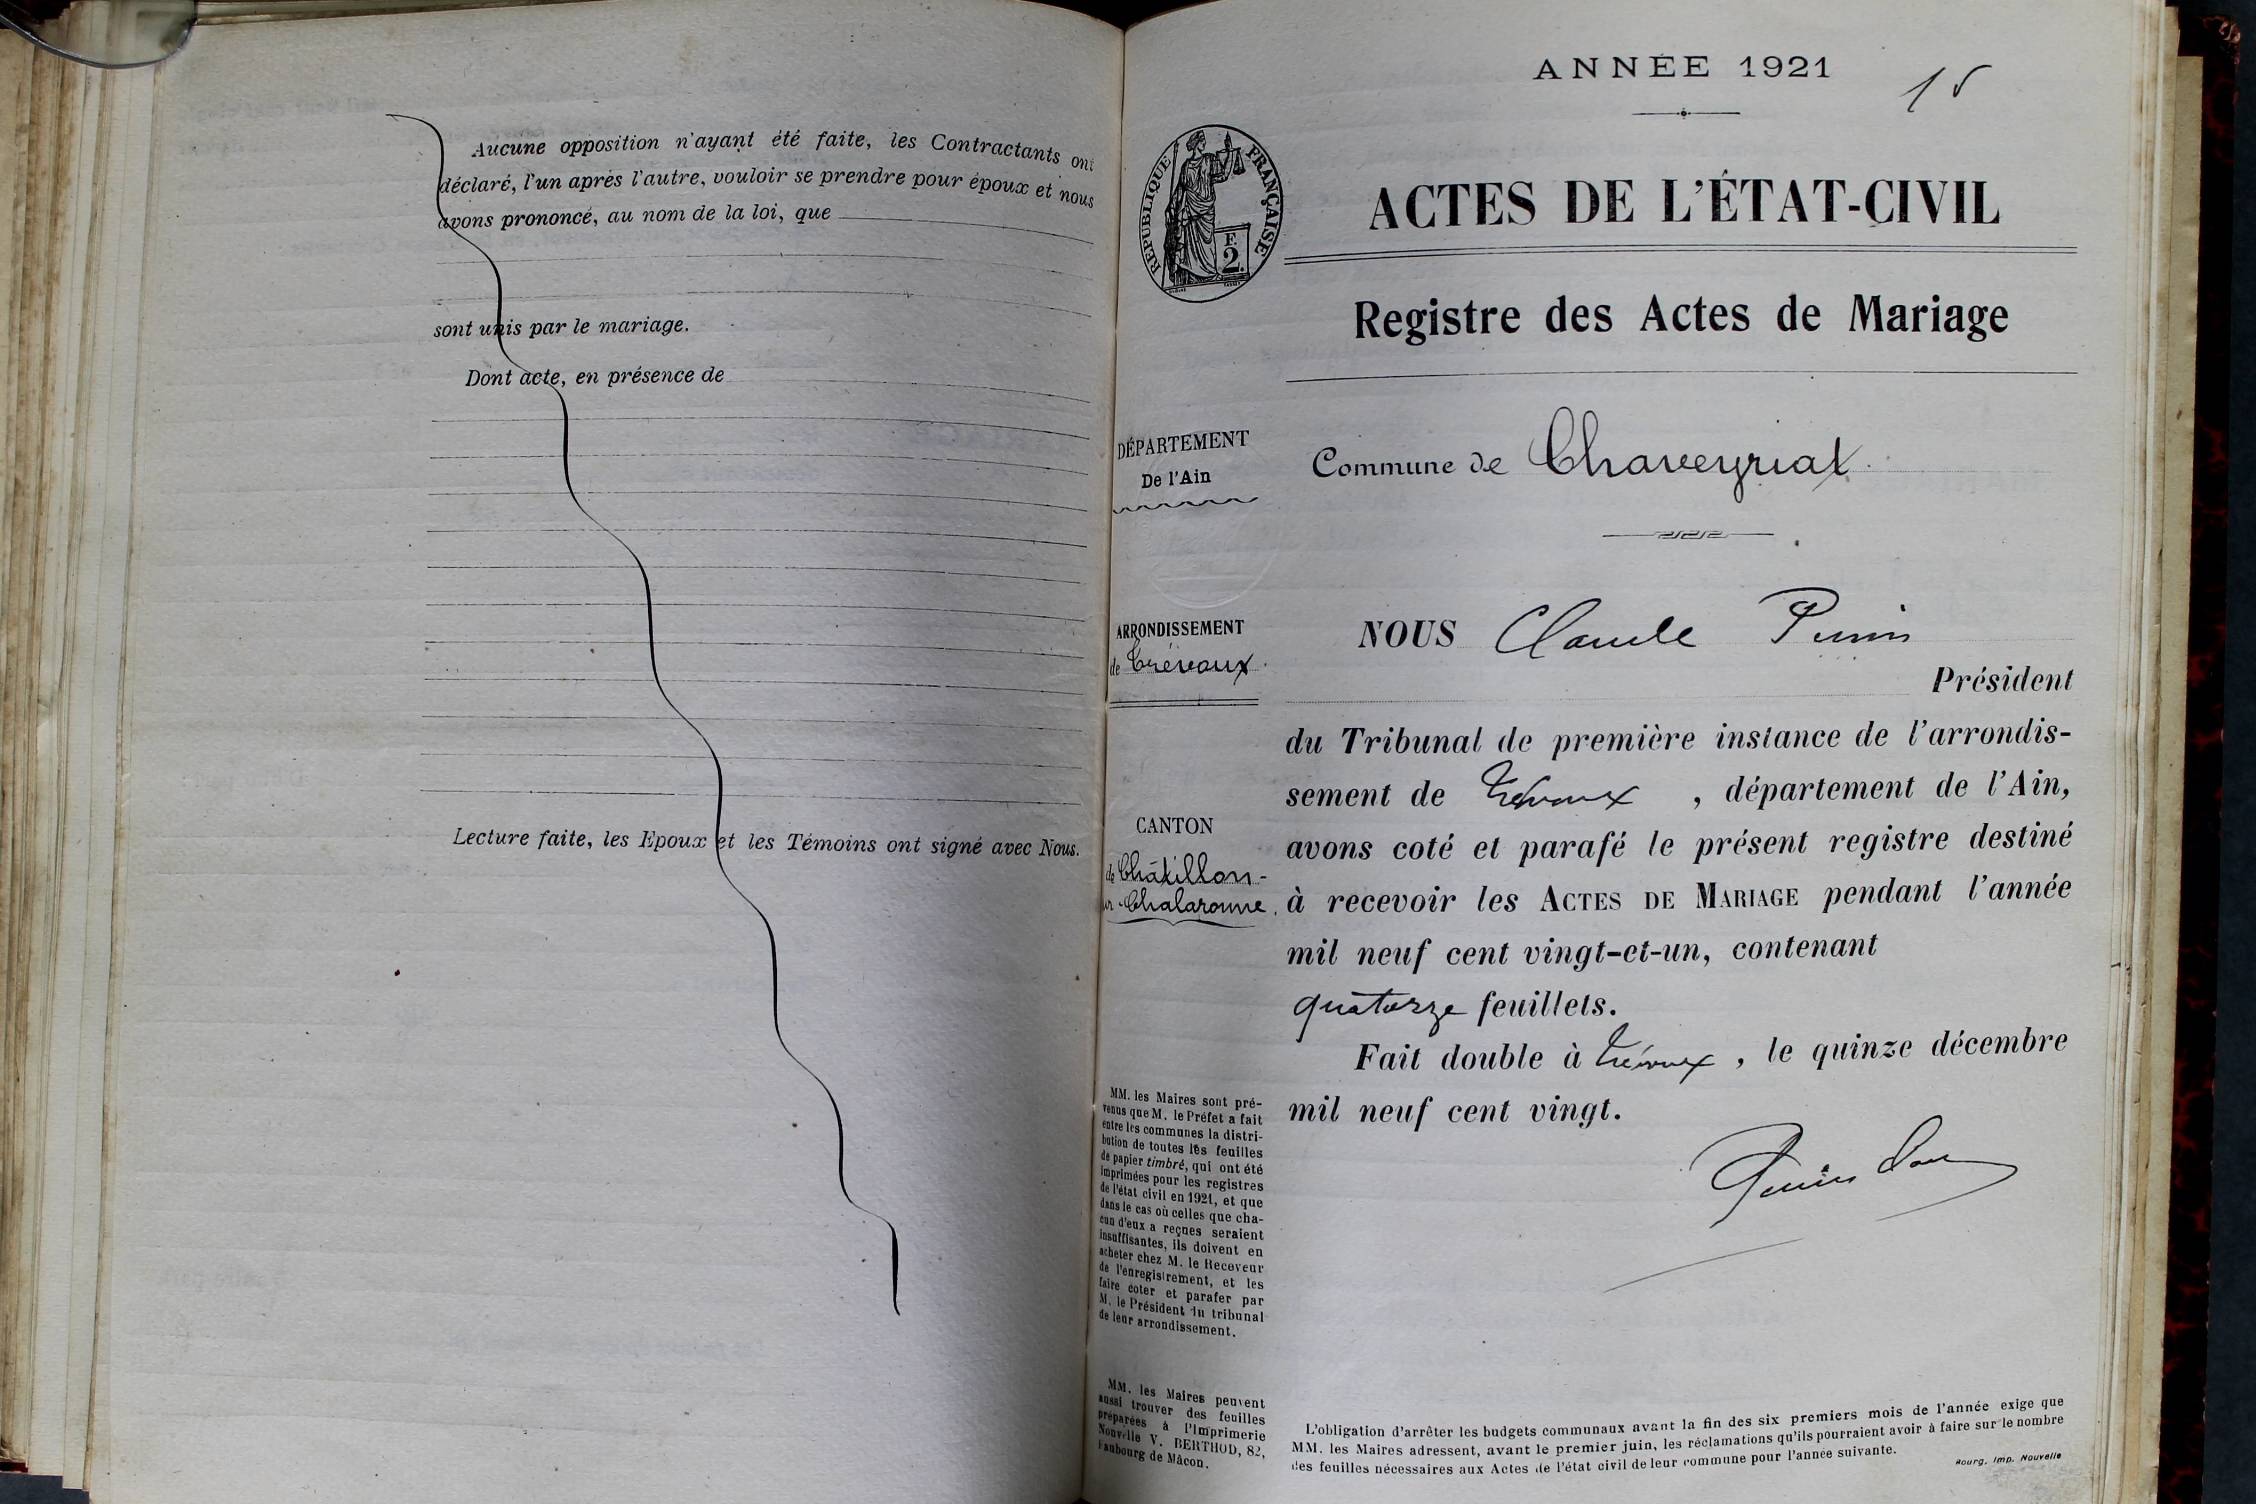 Aucune opposition n'ayant été faite, les Contractants ont
déclaré, l'un après l'autre, vouloir se prendre pour époux et nous
avons prononcé, au nom de la loi, que
sont unis par le mariage.
Dont acte, en présence de
Lecture faite, les Epoux et les Témoins ont signé avec Nous.
ANNÉE 1921
15
RÉPUBLIQUE FRANÇAISE
F.
2.
ACTES DE L'ÉTAT-CIVIL
Registre des Actes de Mariage
DÉPARTEMENT
De l'Ain
Commune de Chaveyriat
ARRONDISSEMENT
de Trévoux
CANTON
de Châtillon-
sur-Chalaronne.
NOUS Claude
Président
du Tribunal de première instance de l'arrondis-
sement de Trévoux, département de l'Ain,
avons coté et parafé le présent registre destiné
à recevoir les ACTES DE MARIAGE pendant l'année
mil neuf cent vingt-et-un, contenant
quatorze feuillets.
Fait double à Trévoux, le quinze décembre
mil neuf cent vingt.
MM. les Maires sont pré-
venus que M. le Préfet a fait
entre les communes la distri-
bution de toutes les feuilles
de papier timbré, qui ont été
imprimées pour les registres
de l'état civil en 1921, et que
dans le cas où celles que cha-
cun d'eux a reçues seraient
insuffisantes, ils doivent en
acheter chez M. le Receveur
de l'enregistrement, et les
faire coter et parafer par
M. le Président du tribunal
de leur arrondissement.
MM. les Maires peuvent
aussi trouver des feuilles
préparées à l'Imprimerie
Nouvelle V. BERTHOD, 82,
Faubourg de Mâcon.
L'obligation d'arrêter les budgets communaux avant la fin des six premiers mois de l'année exige que
MM. les Maires adressent, avant le premier juin, les réclamations qu'ils pourraient avoir à faire sur le nombre
des feuilles nécessaires aux Actes de l'état civil de leur commune pour l'année suivante.
Bourg. Imp. Nouvelle